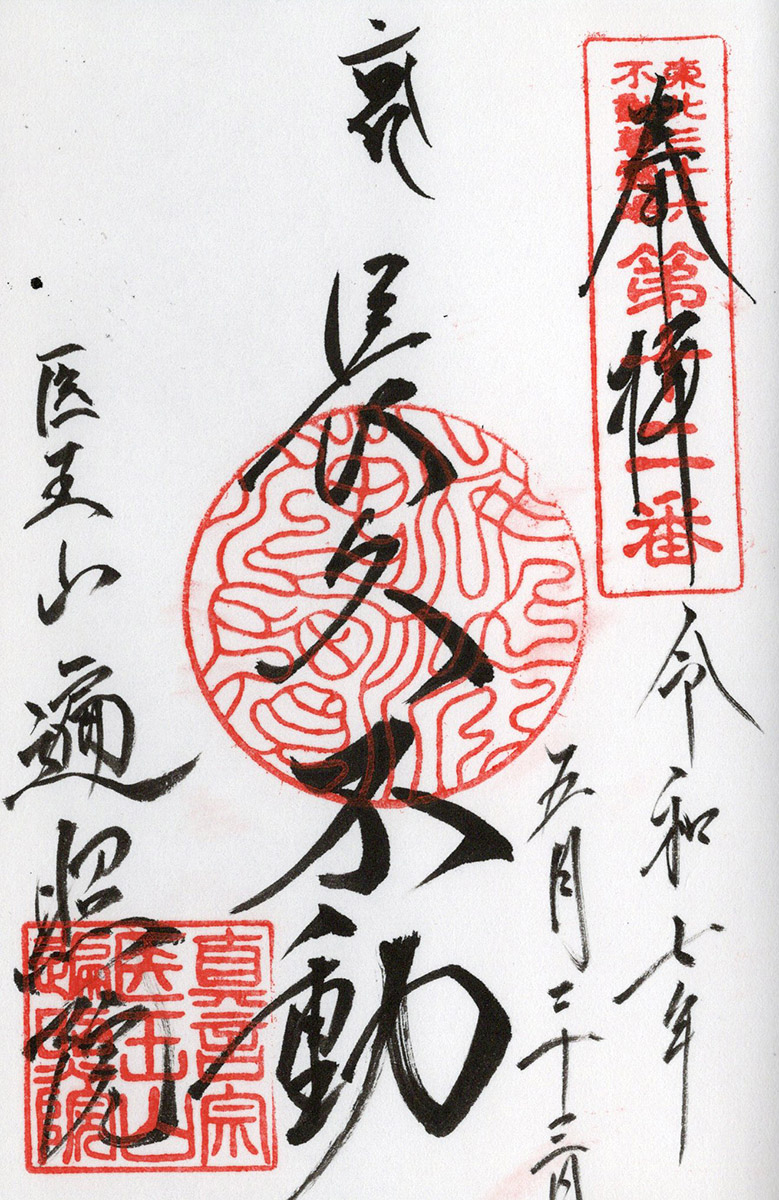 東北三十六
不動尊霊場
第十二番
奉拝
令和七年
五月二十三日
長久不動
医王山遍照院
真言宗
医王山
遍照院